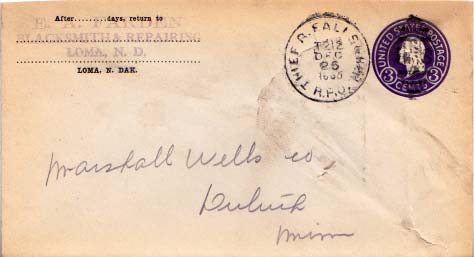 After.........days, return to
E. A. FARDEN
BLACKSMITH & REPAIRING
LOMA, N. D.
LOMA, N. DAK.
THIEF R. FALLS
DEC
26
R.P.O.
UNITED STATES POSTAGE
3 3
CENTS
Marshall Wells Co,
Duluth
Minn